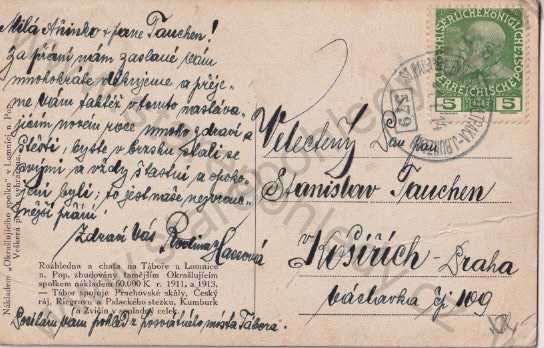 Milá Ařinko + pane Tauchen!
Za přání nám zaslané vám
mnohokráte děkujeme a přeje-
me vám taktéž v tomto nastáva-
jícím novém roce mnoho zdraví a
štěstí, byste v brzku stali se
a vždy šťastni a spoko-
jeni byli; to jest naše nejvrou-
nější přání!
Zdraví Vás Rodina
Rozhledna a chata na Táboře u Lomnice
n. Pop. zbudovány tamějším Okrašlujícím
spolkem nákladem 60.000 K r. 1911, a 1913.
— Tábor spojuje Prachovské skály, Český
ráj, Riegrovu a Palackého stezku, Kumburk
a Zvičín v spořádaný celek.
Posíláme vám pohled z posvátného města Tábora.
Nákladem „Okrašlujícího spolku" v Lomnici n. Pop.
Veškerá práva vyhrazena.
KAISERLICHE KÖNIGLICHE
ÖSTERREICHISCHE POST
5 5
379
Veletěný Pan pan
Stanislav Tauchen
v Košířích - Praha
Václavka čj 109